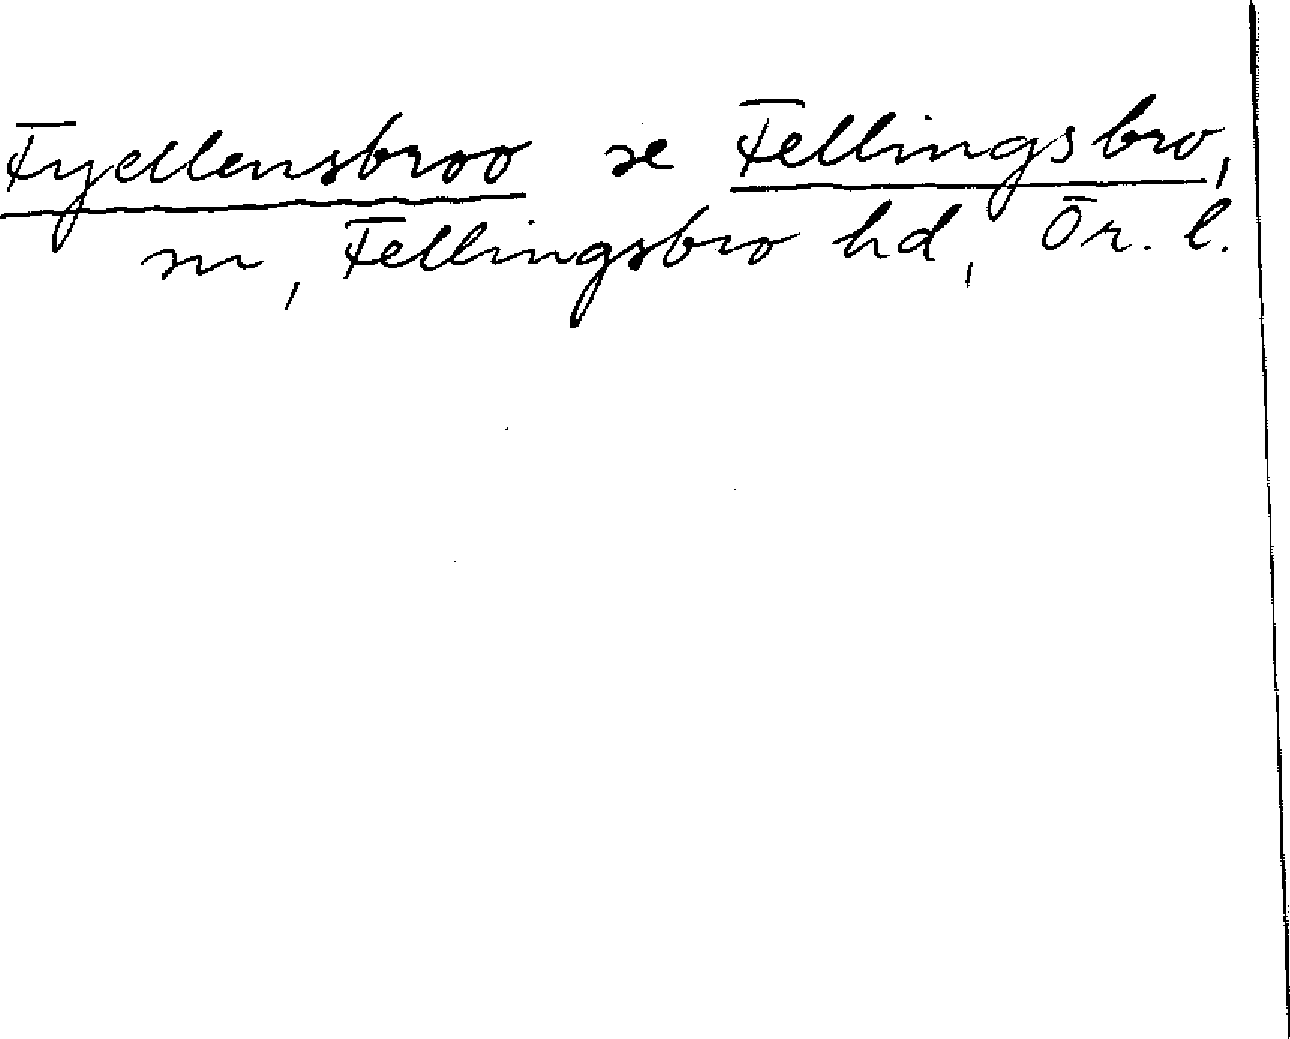 Fyellensbroo se Fellingsbro,
sn, Fellingsbro hd, Ör. l.